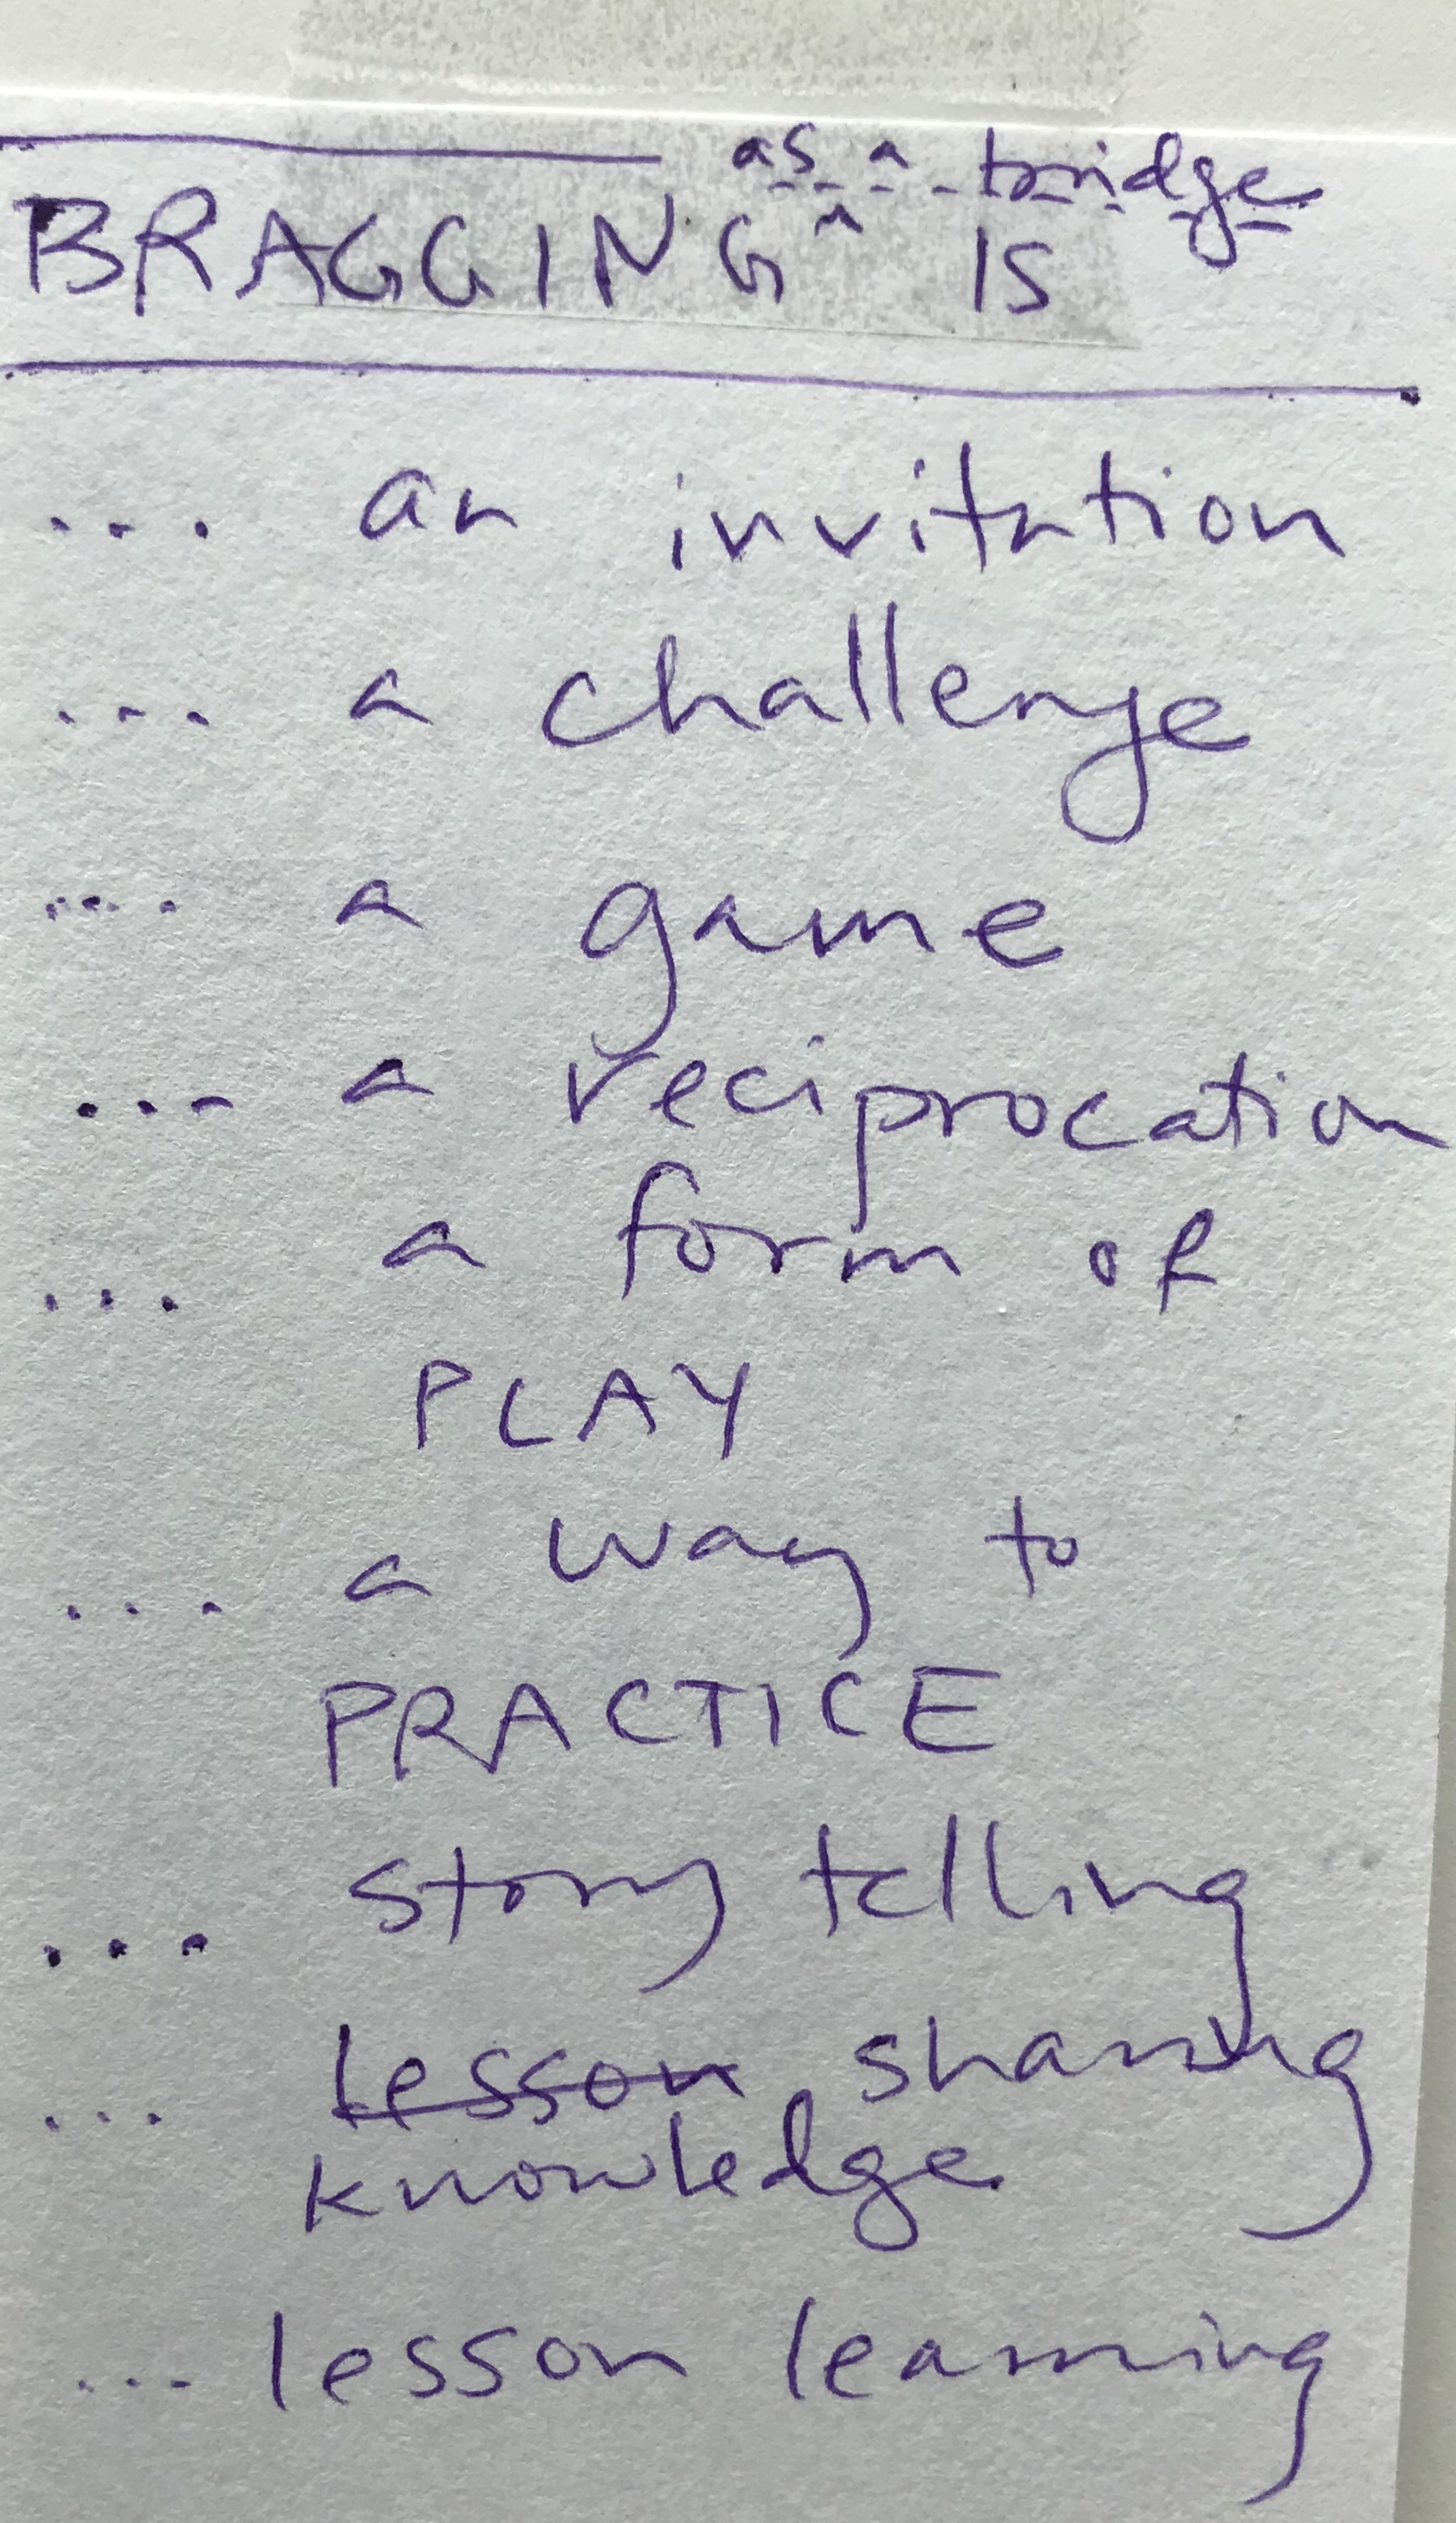 as a bridge
BRAGGING ^ IS
... an invitation
... a challenge
... a game
... a reciprocation
... a form of
PLAY
... a way to
PRACTICE
... story telling
... lesson sharing
knowledge
... lesson learning